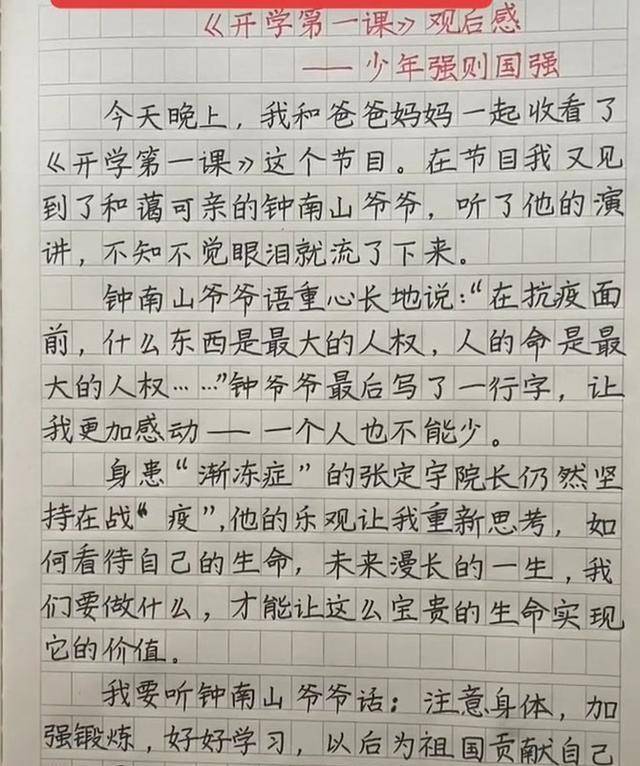 《开学第一课》观后感
——少年强则国强
今天晚上，我和爸爸妈妈一起收看了
《开学第一课》这个节目。在节目我又见
到了和蔼可亲的钟南山爷爷，听了他的演
讲，不知不觉眼泪就流了下来。
钟南山爷爷语重心长地说：“在抗疫面
前，什么东西是最大的人权，人的命是最
大的人权……”钟爷爷最后写了一行字，让
我更加感动——一个人也不能少。
身患“渐冻症”的张定宇院长仍然坚
持在战“疫”，他的乐观让我重新思考，如
何看待自己的生命，未来漫长的一生，我
们要做什么，才能让这么宝贵的生命实现
它的价值。
我要听钟南山爷爷话；注意身体，加
强锻炼，好好学习，以后为祖国贡献自己